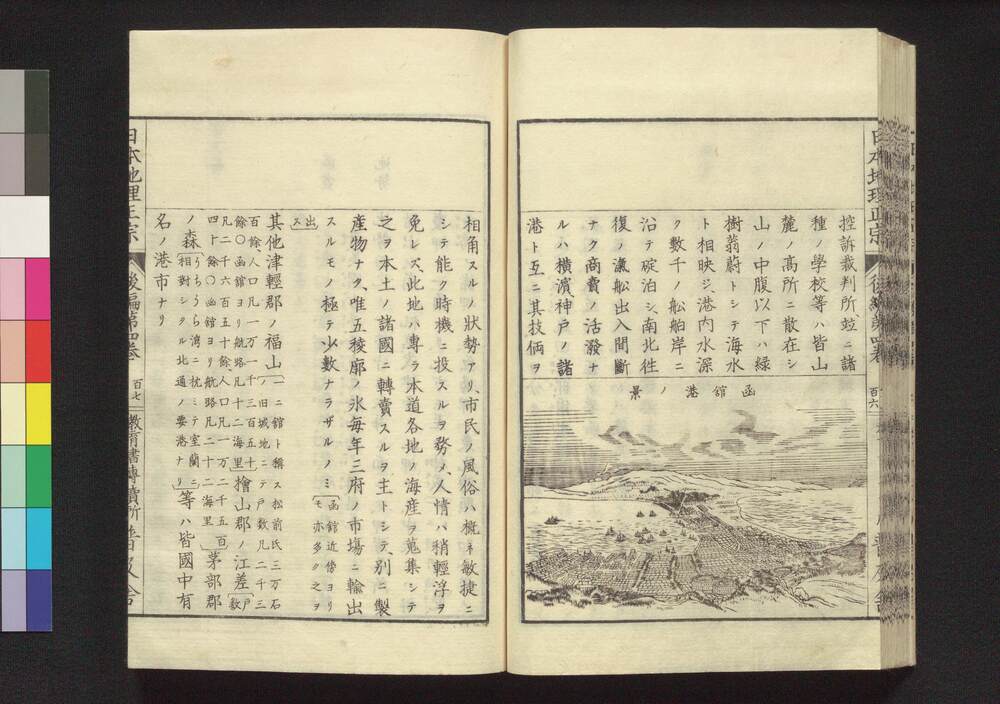 日本地理正宗
後編第四卷
百六
控訴裁判所、竝ニ諸
種ノ學校等ハ皆山
麓ノ高所ニ散在シ
山ノ中腹以下ハ緑
樹蓊蔚トシテ海水
ト相映ジ、港内水深
ク數千ノ船舶岸ニ
沿テ碇泊シ、南北徃
復ノ漁舩出入間斷
ナク商賣ノ活潑ナ
ルハ横濱神戸ノ諸
港ト互ニ其技倆ヲ
函舘港ノ景
相角スルノ狀勢アリ、市民ノ風俗ハ概ネ敏捷ニ
シテ能ク時機ニ投スルヲ務メ、人情ハ稍輕浮ヲ
免レズ、此地ハ専ラ本道各地ノ海産ヲ蒐集シテ
之ヲ本土ノ諸國ニ轉賣スルヲ主トシテ、別ニ製
産物ナク、唯五稜廓ノ氷毎年三府ノ市場ニ輸出
スルモノ極テ少數ナラザルノミ〔函館近傍ヨリモ亦多ク之ヲ
出ス〕
其他津輕郡ノ福山〔一ニ館ト稱ス松前氏三万石
ノ旧城地ニテ戸數凡二千三
百餘、人口凡一万一千三百五十
餘〇函舘ヨリ航路凡十二海里〕檜山郡ノ江差〔戸數
凡二千六百五十餘、人口凡一万二千五百
四十餘〇函舘ヨリ航路凡二十二海里〕茅部郡
ノ森〔うちうら湾ニ枕ミテ室蘭ニ
相對シタル北通ノ要港ナリ〕等ハ皆國中有
名ノ港市ナリ
日本地理正宗
後編第四卷
百七
教育書專賣所 普及舍